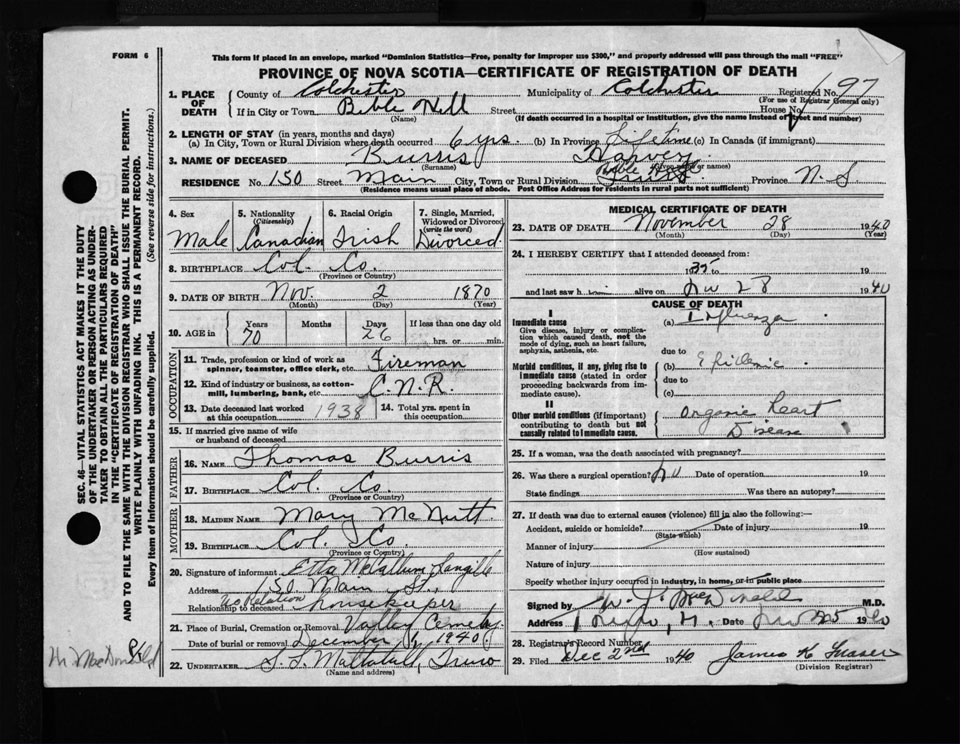 FORM 6
This form if placed in an envelope, marked "Dominion Statistics—Free, penalty for improper use $300," and property addressed will pass through the mail "FREE"
PROVINCE OF NOVA SCOTIA—CERTIFICATE OF REGISTRATION OF DEATH
1. PLACE OF DEATH County of Colchester Municipality of Colchester Registered No. 197
(For use of Registrar General only)
If in City or Town Bible Hill Street House No.
(Name) (If death occurred in a hospital or institution, give the name instead of street and number)
2. LENGTH OF STAY (in years, months and days)
(a) In City, Town or Rural Division where death occurred 6 yrs (b) In Province Lifetime (c) In Canada (if immigrant)
3. NAME OF DECEASED Burris Harvey
(Surname) (Given name or names)
RESIDENCE No. 150 Street Main City, Town or Rural Division Bible Hill Province N. S.
(Residence means usual place of abode. Post Office Address for residents in rural parts not sufficient)
4. Sex Male
5. Nationality (Citizenship) Canadian
6. Racial Origin Irish
7. Single, Married, Widowed or Divorced (write the word) Divorced
8. BIRTHPLACE Col. Co.
(Province or Country)
9. DATE OF BIRTH Nov. 2 1870
(Month) (Day) (Year)
10. AGE in Years 70 Months Days 26 If less than one day old hrs. or min.
OCCUPATION
11. Trade, profession or kind of work as spinner, teamster, office clerk, etc. Fireman
12. Kind of industry or business, as cotton-mill, lumbering, bank, etc. C.N.R.
13. Date deceased last worked at this occupation 1938 14. Total yrs. spent in this occupation
15. If married give name of wife or husband of deceased
FATHER
16. NAME Thomas Burris
17. BIRTHPLACE Col. Co.
(Province or Country)
MOTHER
18. MAIDEN NAME Mary McNutt
19. BIRTHPLACE Col. Co.
(Province or Country)
20. Signature of informant Etta McCallum Langill
Address 150 Main St.,
Relationship to deceased No Relation housekeeper
21. Place of Burial, Cremation or Removal Cemetery
Date of burial or removal December 1, 1940
22. UNDERTAKER Mattatall, Truro
(Name and address)
MEDICAL CERTIFICATE OF DEATH
23. DATE OF DEATH November 28 1940
(Month) (Day) (Year)
24. I HEREBY CERTIFY that I attended deceased from:
1935 to 19
and last saw him alive on Nov 28 1940
CAUSE OF DEATH
I
Immediate cause (a) Influenza
Give disease, injury or complication which caused death, not the mode of dying, such as heart failure, asphyxia, asthenia, etc.
due to
Morbid conditions, if any, giving rise to immediate cause (stated in order proceeding backwards from immediate cause). (b) Epidemic
due to
(c)
II
Other morbid conditions (if important) contributing to death but not causally related to immediate cause. Organic heart Disease
25. If a woman, was the death associated with pregnancy?
26. Was there a surgical operation? No Date of operation 19
State findings Was there an autopsy?
27. If death was due to external causes (violence) fill in also the following:—
Accident, suicide or homicide? Date of injury 19
(State which)
Manner of injury
(How sustained)
Nature of injury
Specify whether injury occurred in industry, in home, or in public place
Signed by M.D.
Address Truro, Date
28. Registrar's Record Number
29. Filed Dec 2nd 1940 James K Fraser
(Division Registrar)
SEC. 46—VITAL STATISTICS ACT MAKES IT THE DUTY
OF THE UNDERTAKER OR PERSON ACTING AS UNDER-
TAKER TO OBTAIN ALL THE PARTICULARS REQUIRED
IN THE "CERTIFICATE OF REGISTRATION OF DEATH"
AND TO FILE THE SAME WITH THE DIVISION REGISTRAR WHO SHALL ISSUE THE BURIAL PERMIT.
WRITE PLAINLY WITH UNFADING INK. THIS IS A PERMANENT RECORD.
Every item of information should be carefully supplied. (See reverse side for instructions.)